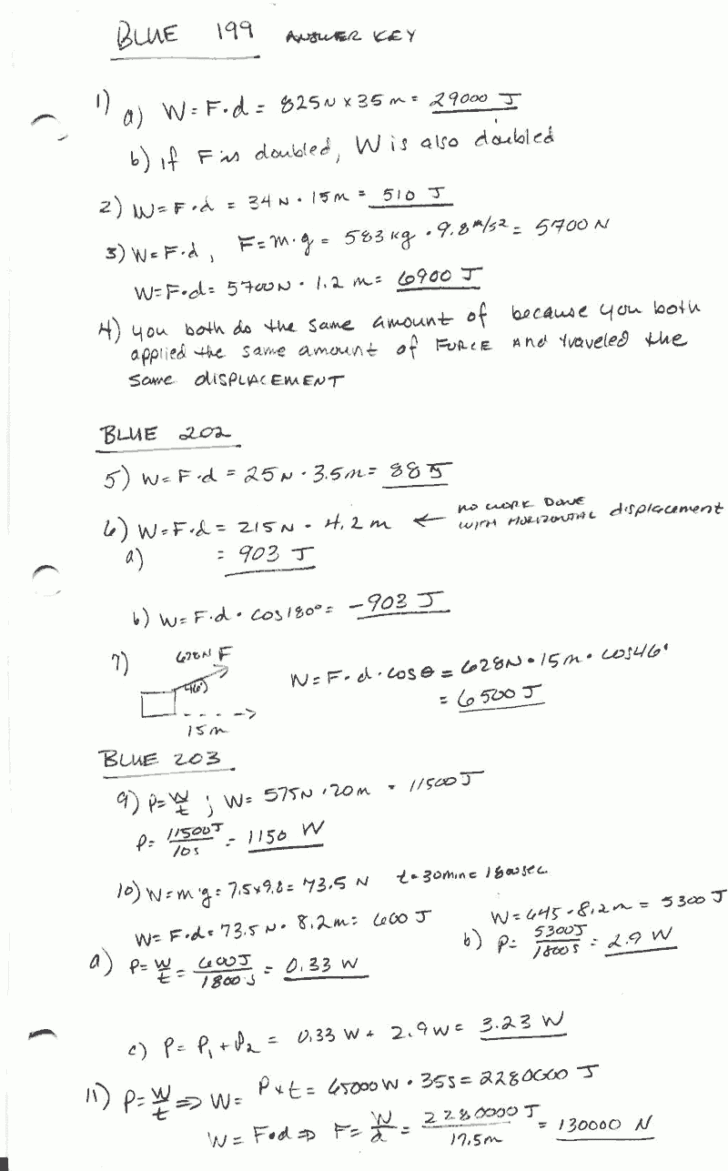 BLUE 199 ANSWER KEY
1) a) W = F·d = 825N x 35m = 29000 J
b) if F is doubled, W is also doubled
2) W = F·d = 34 N · 15m = 510 J
3) W = F·d , F = m·g = 583 kg · 9.8 m/s2 = 5700 N
W = F·d = 5700N · 1.2 m = 6900 J
4) you both do the same amount of because you both
applied the same amount of FORCE AND traveled the
same DISPLACEMENT
BLUE 202
5) W = F·d = 25N · 3.5m = 88 J
6) W = F·d = 215N · 4.2 m ← NO WORK DONE
WITH HORIZONTAL displacement
a) = 903 J
b) W = F·d · cos180° = -903 J
7) 628N F
46°
15m
W = F·d·cosθ = 628N · 15m · cos46°
= 6500 J
BLUE 203
9) P = W/t ; W = 575N · 20m = 11500J
P = 11500J/10s = 1150 W
10) W = m·g = 7.5x9.8 = 73.5 N t = 30min = 1800sec
W = F·d = 73.5 N · 8.2m = 600 J
a) P = W/t = 600J/1800s = 0.33 W
W = 645 · 8.2m = 5300 J
b) P = 5300J/1800s = 2.9 W
c) P = P1 + P2 = 0.33 W + 2.9W = 3.23 W
11) P = W/t ⇒ W = P x t = 65000W · 35s = 2280000 J
W = F·d ⇒ F = W/d = 2280000 J/17.5m = 130000 N